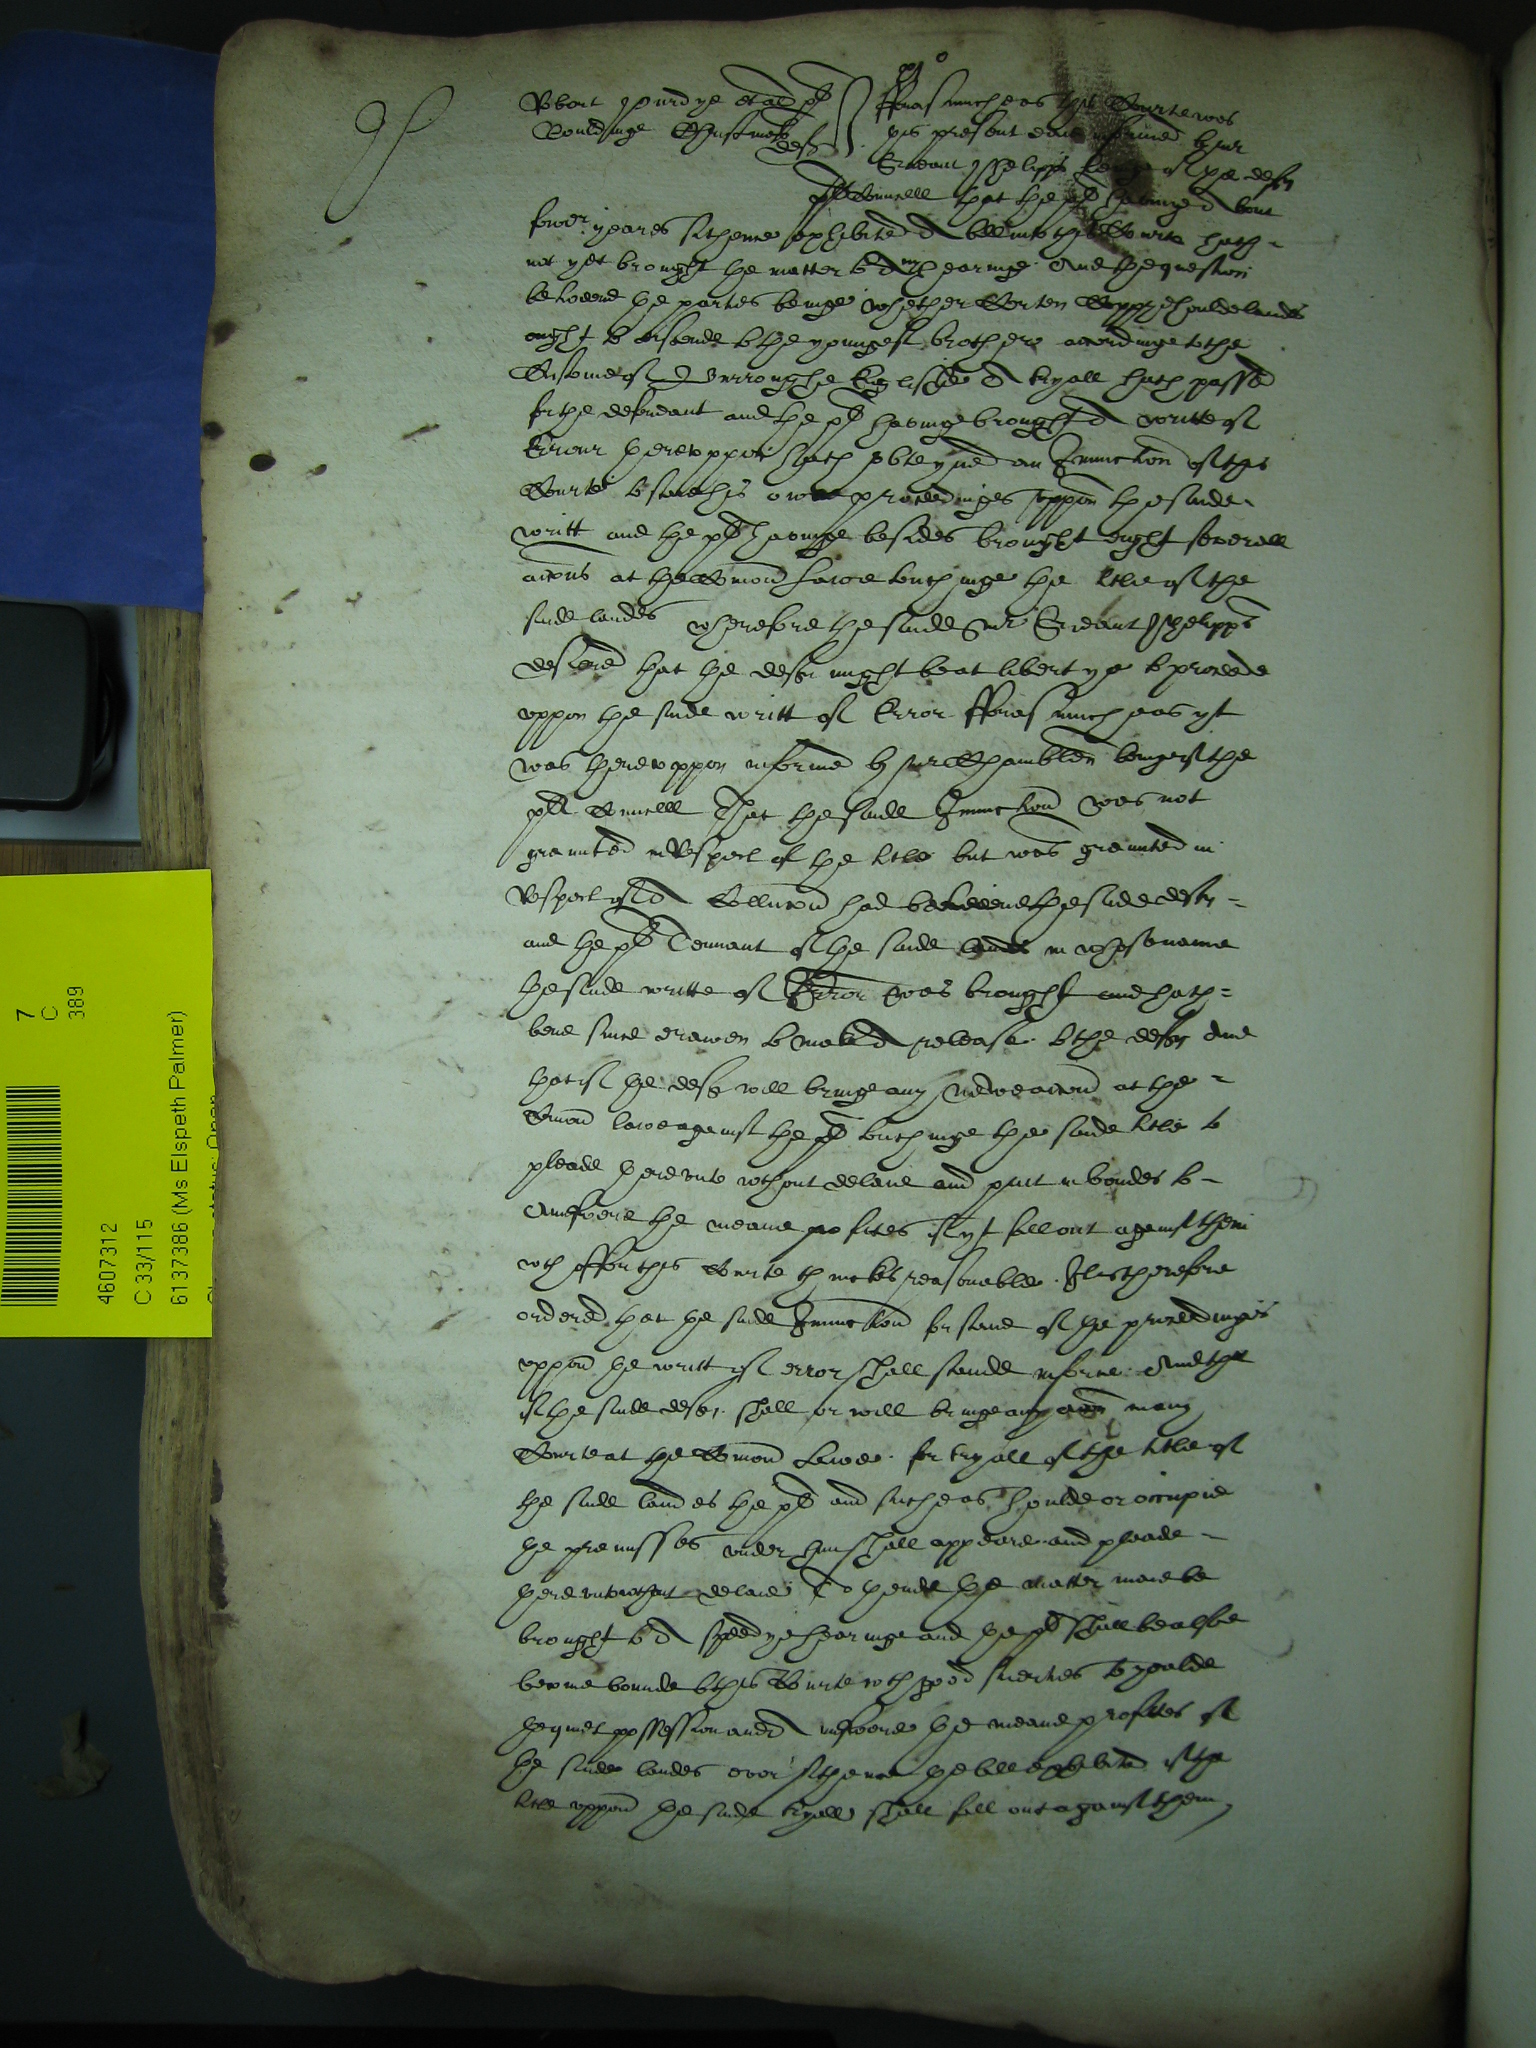 Robert Purdye et al pl
Rouldinge Christmas
deft
Fforasmuch as this Courte was
this present daie informed by mr
Serieant Phelipps beinge of the deftes
Councell that the pl havinge about
fower yeares sithence exhibited a bill into this Courte hath
not yet brought the matter to a hearinge And the question
betweene the parties beinge whether Certen Coppyehoulde landes
ought to discende to the youngest brother accordinge to the
Custome of Burroughe Englishe a tryall hath passed
for the defendant and the pl havinge brought a writte of
Errour therevppon hath obteyned an Iniunction of this
Courte to staie his owne proceedinges vppon the saide
writt and the pl havinge besides brought eight severall
accons at the Comon Lawe touchinge the title of the
saide landes wherefore the saide mr Serieant Phelipps
desiered that the deft might be at libertye to proceede
vppon the saide writt of Error Fforasmuch as yt
was therevppon informed by mr Chamblen beinge of the
pltes Councell That the saide Iniunction was not
graunted in respect of the title but was graunted in
respect of a Collusion had betweene the saide deft
and the pl Tennant of the saide landes in whose name
the saide writte of Error was brought and hath
bene since drawen to make a release to the deft And
that if the deft will bringe any newe accon at the
Comon lawe against the pl touchinge the saide title to
pleade therevnto without delaie and putt in bondes to
Answere the meane profites if yt fall out against them
wch offer this Courte thinkes reasonable. It is therefore
ordered that the saide Iniunction for staie of the proceedinges
vppon the writt of error shall stande in force. And that
if the saide deft shall or will bringe any accon in any
Courte at the Comon Lawe for tryall of the title of
the saide landes the pl and such as houlde or occupie
the premisses vnder him shall appeare and pleade
therevnto without delaie To thende the matter maie be
brought to a speedye hearinge and the pl shall be alsoe
become bounde to this Courte wth good suerties to yealde
the quiet possession and answere the meane profittes of
the saide landes ever sithence the bill exhibited if the
title vppon the saide tryall shall fall out against them
7
C
389
4607312
C 33/115
6137386 (Ms Elspeth Palmer)